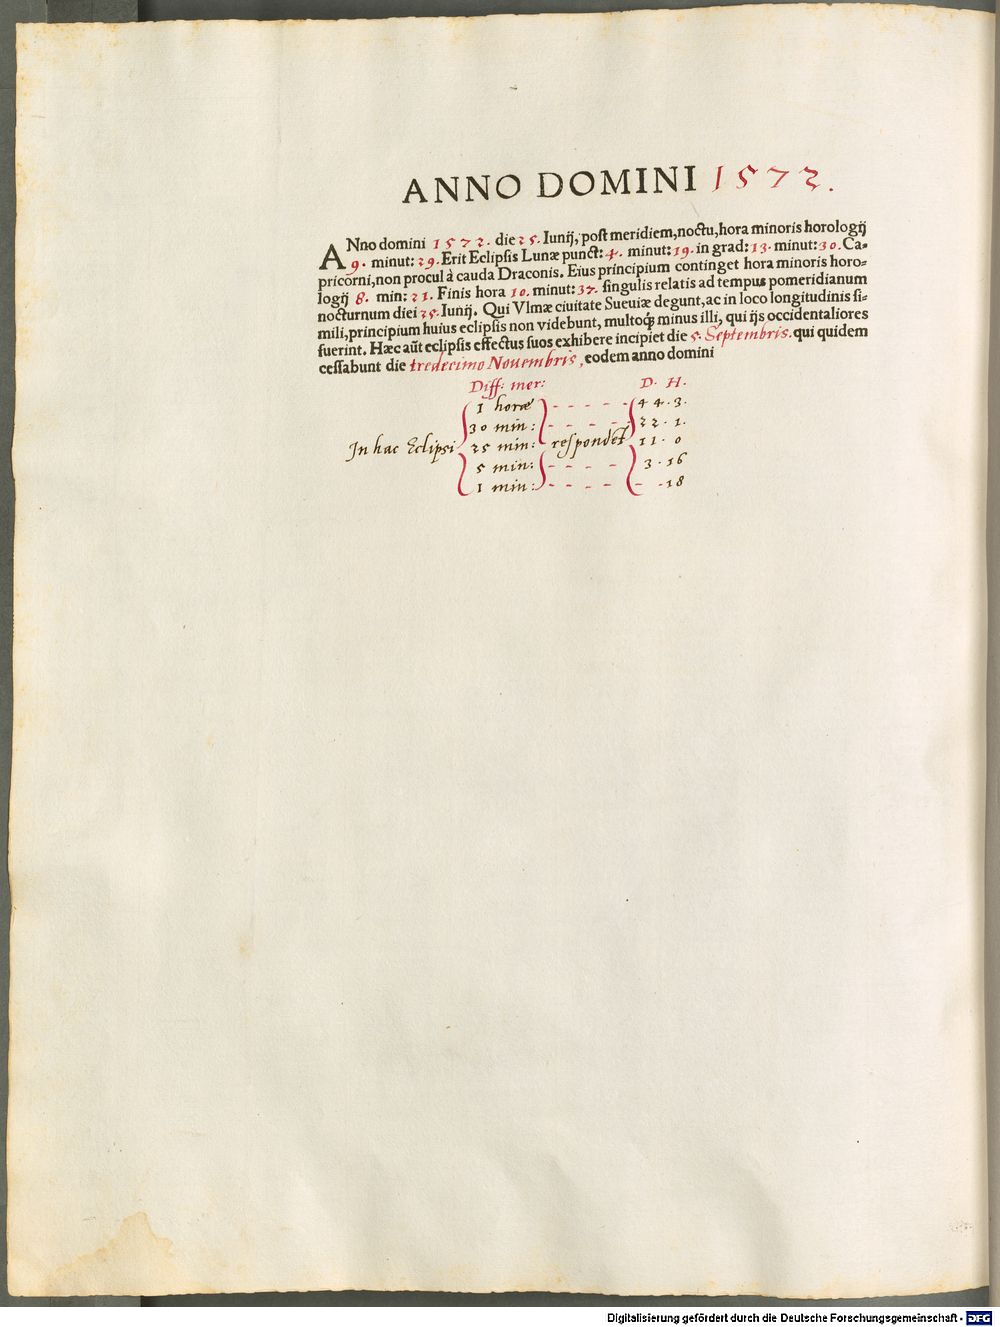 ANNO DOMINI 1572.
ANno domini 1572. die 25. Iunij, post meridiem, noctu, hora minoris horologij
9. minut: 29. Erit Eclipsis Lunæ punct: 4. minut: 19. in grad: 13. minut: 30. Ca-
pricorni, non procul à cauda Draconis. Eius principium continget hora minoris horo-
logij 8. min: 21. Finis hora 10. minut: 37. singulis relatis ad tempus pomeridianum
nocturnum diei 25. Iunij. Qui Vlmæ ciuitate Sueuiæ degunt, ac in loco longitudinis si-
mili, principium huius eclipsis non videbunt, multoq́; minus illi, qui ijs occidentaliores
fuerint. Hæc aũt eclipsis effectus suos exhibere incipiet die 5. Septembris. qui quidem
cessabunt die tredecimo Nouembris, eodem anno domini
Diff: mer: D. H.
1 horæ - - - - - 44. 3.
30 min: - - - - 22. 1.
In hac Eclipsi 25 min: respondet 11. 0
5 min: - - - - 3. 16
1 min: - - - - - . 18
Digitalisierung gefördert durch die Deutsche Forschungsgemeinschaft - DFG